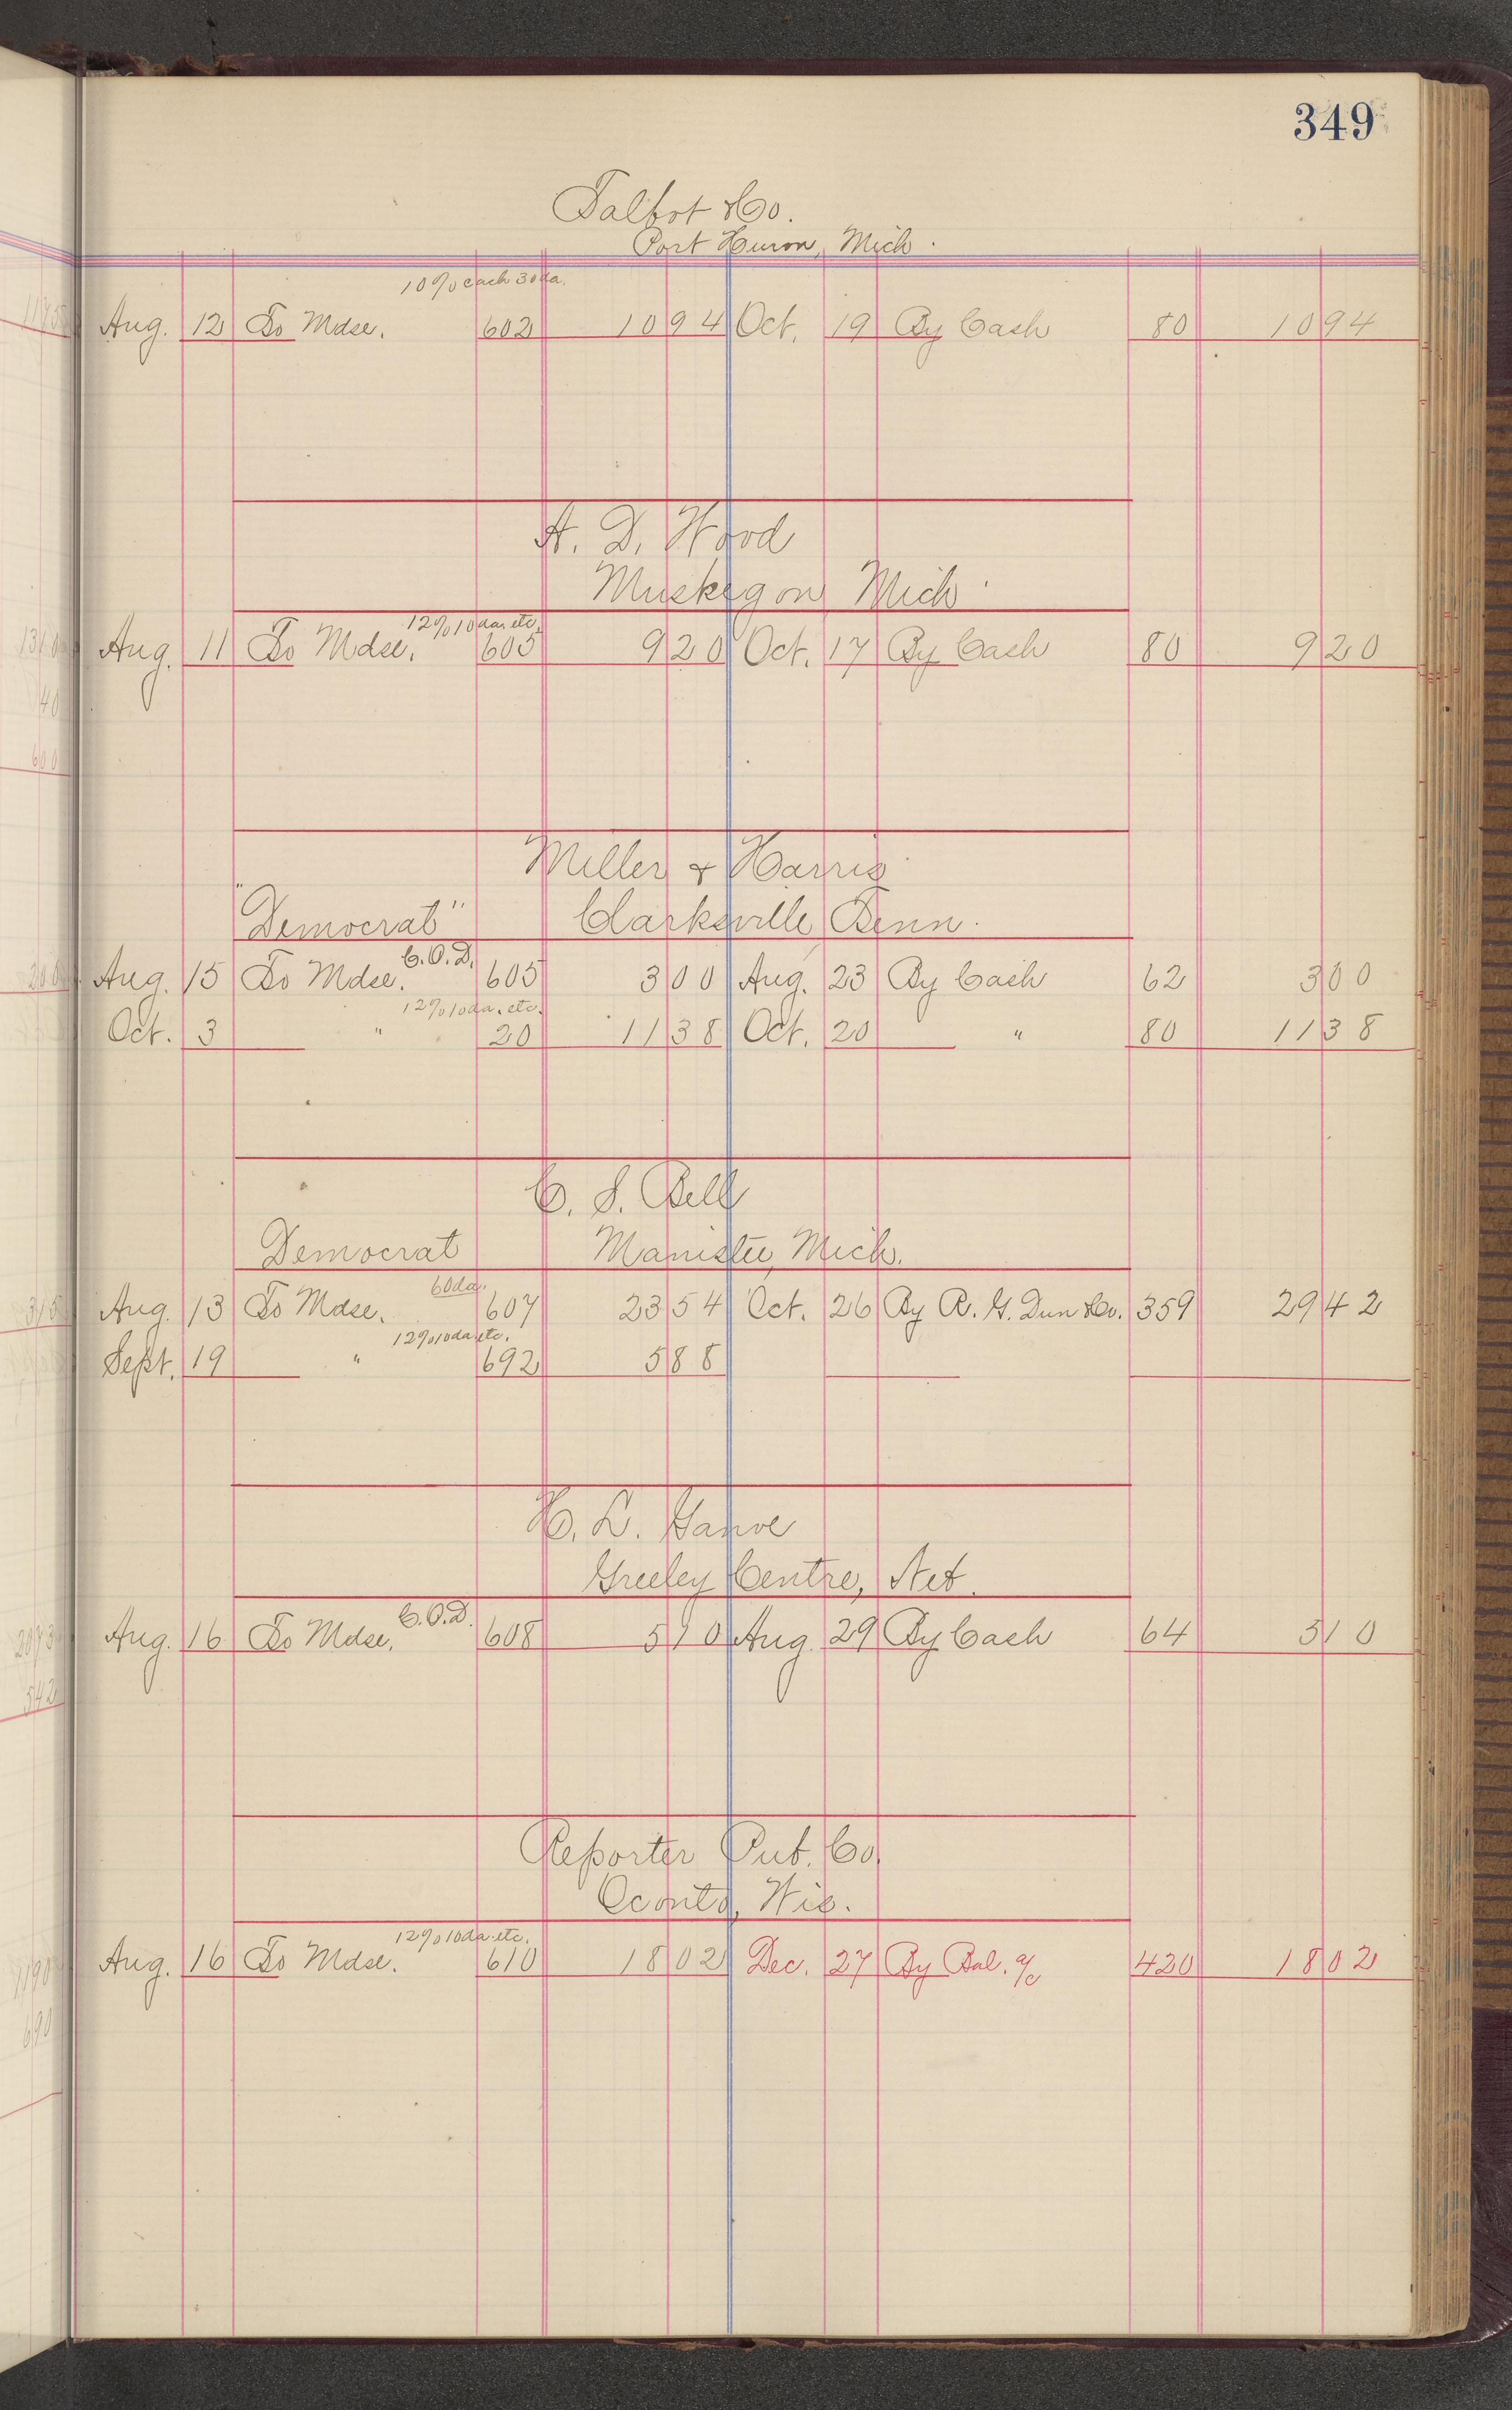 349
Talbot & Co.
Port Huron, Mich.
10% cash 30 da.
Aug. 12 To Mdse. 602 10 94 Oct. 19 By Cash 80 10 94
A. D. Wood
Muskegon Mich.
12% 10 da. etc.
Aug. 11 To Mdse. 605 9 20 Oct. 17 By Cash 80 9 20
Miller & Harris
"Democrat" Clarksville Tenn.
C.O.D.
Aug. 15 To Mdse. 605 3 00 Aug. 23 By Cash 62 3 00
12% 10 da. etc.
Oct. 3 " 20 11 38 Oct. 20 " 80 11 38
C. S. Bell
Democrat Manistee, Mich.
60 da.
Aug. 13 To Mdse. 607 23 54 Oct. 26 By R. G. Dun & Co. 359 29 42
12% 10 da. etc.
Sept. 19 " 692 5 88
H. L. Ganoe
Greeley Centre, Neb.
C.O.D.
Aug. 16 To Mdse. 608 5 10 Aug. 29 By Cash 64 5 10
Reporter Pub. Co.
Oconto, Wis.
12% 10 da. etc.
Aug. 16 To Mdse. 610 18 02 Dec. 27 By Bal. a/c 420 18 02